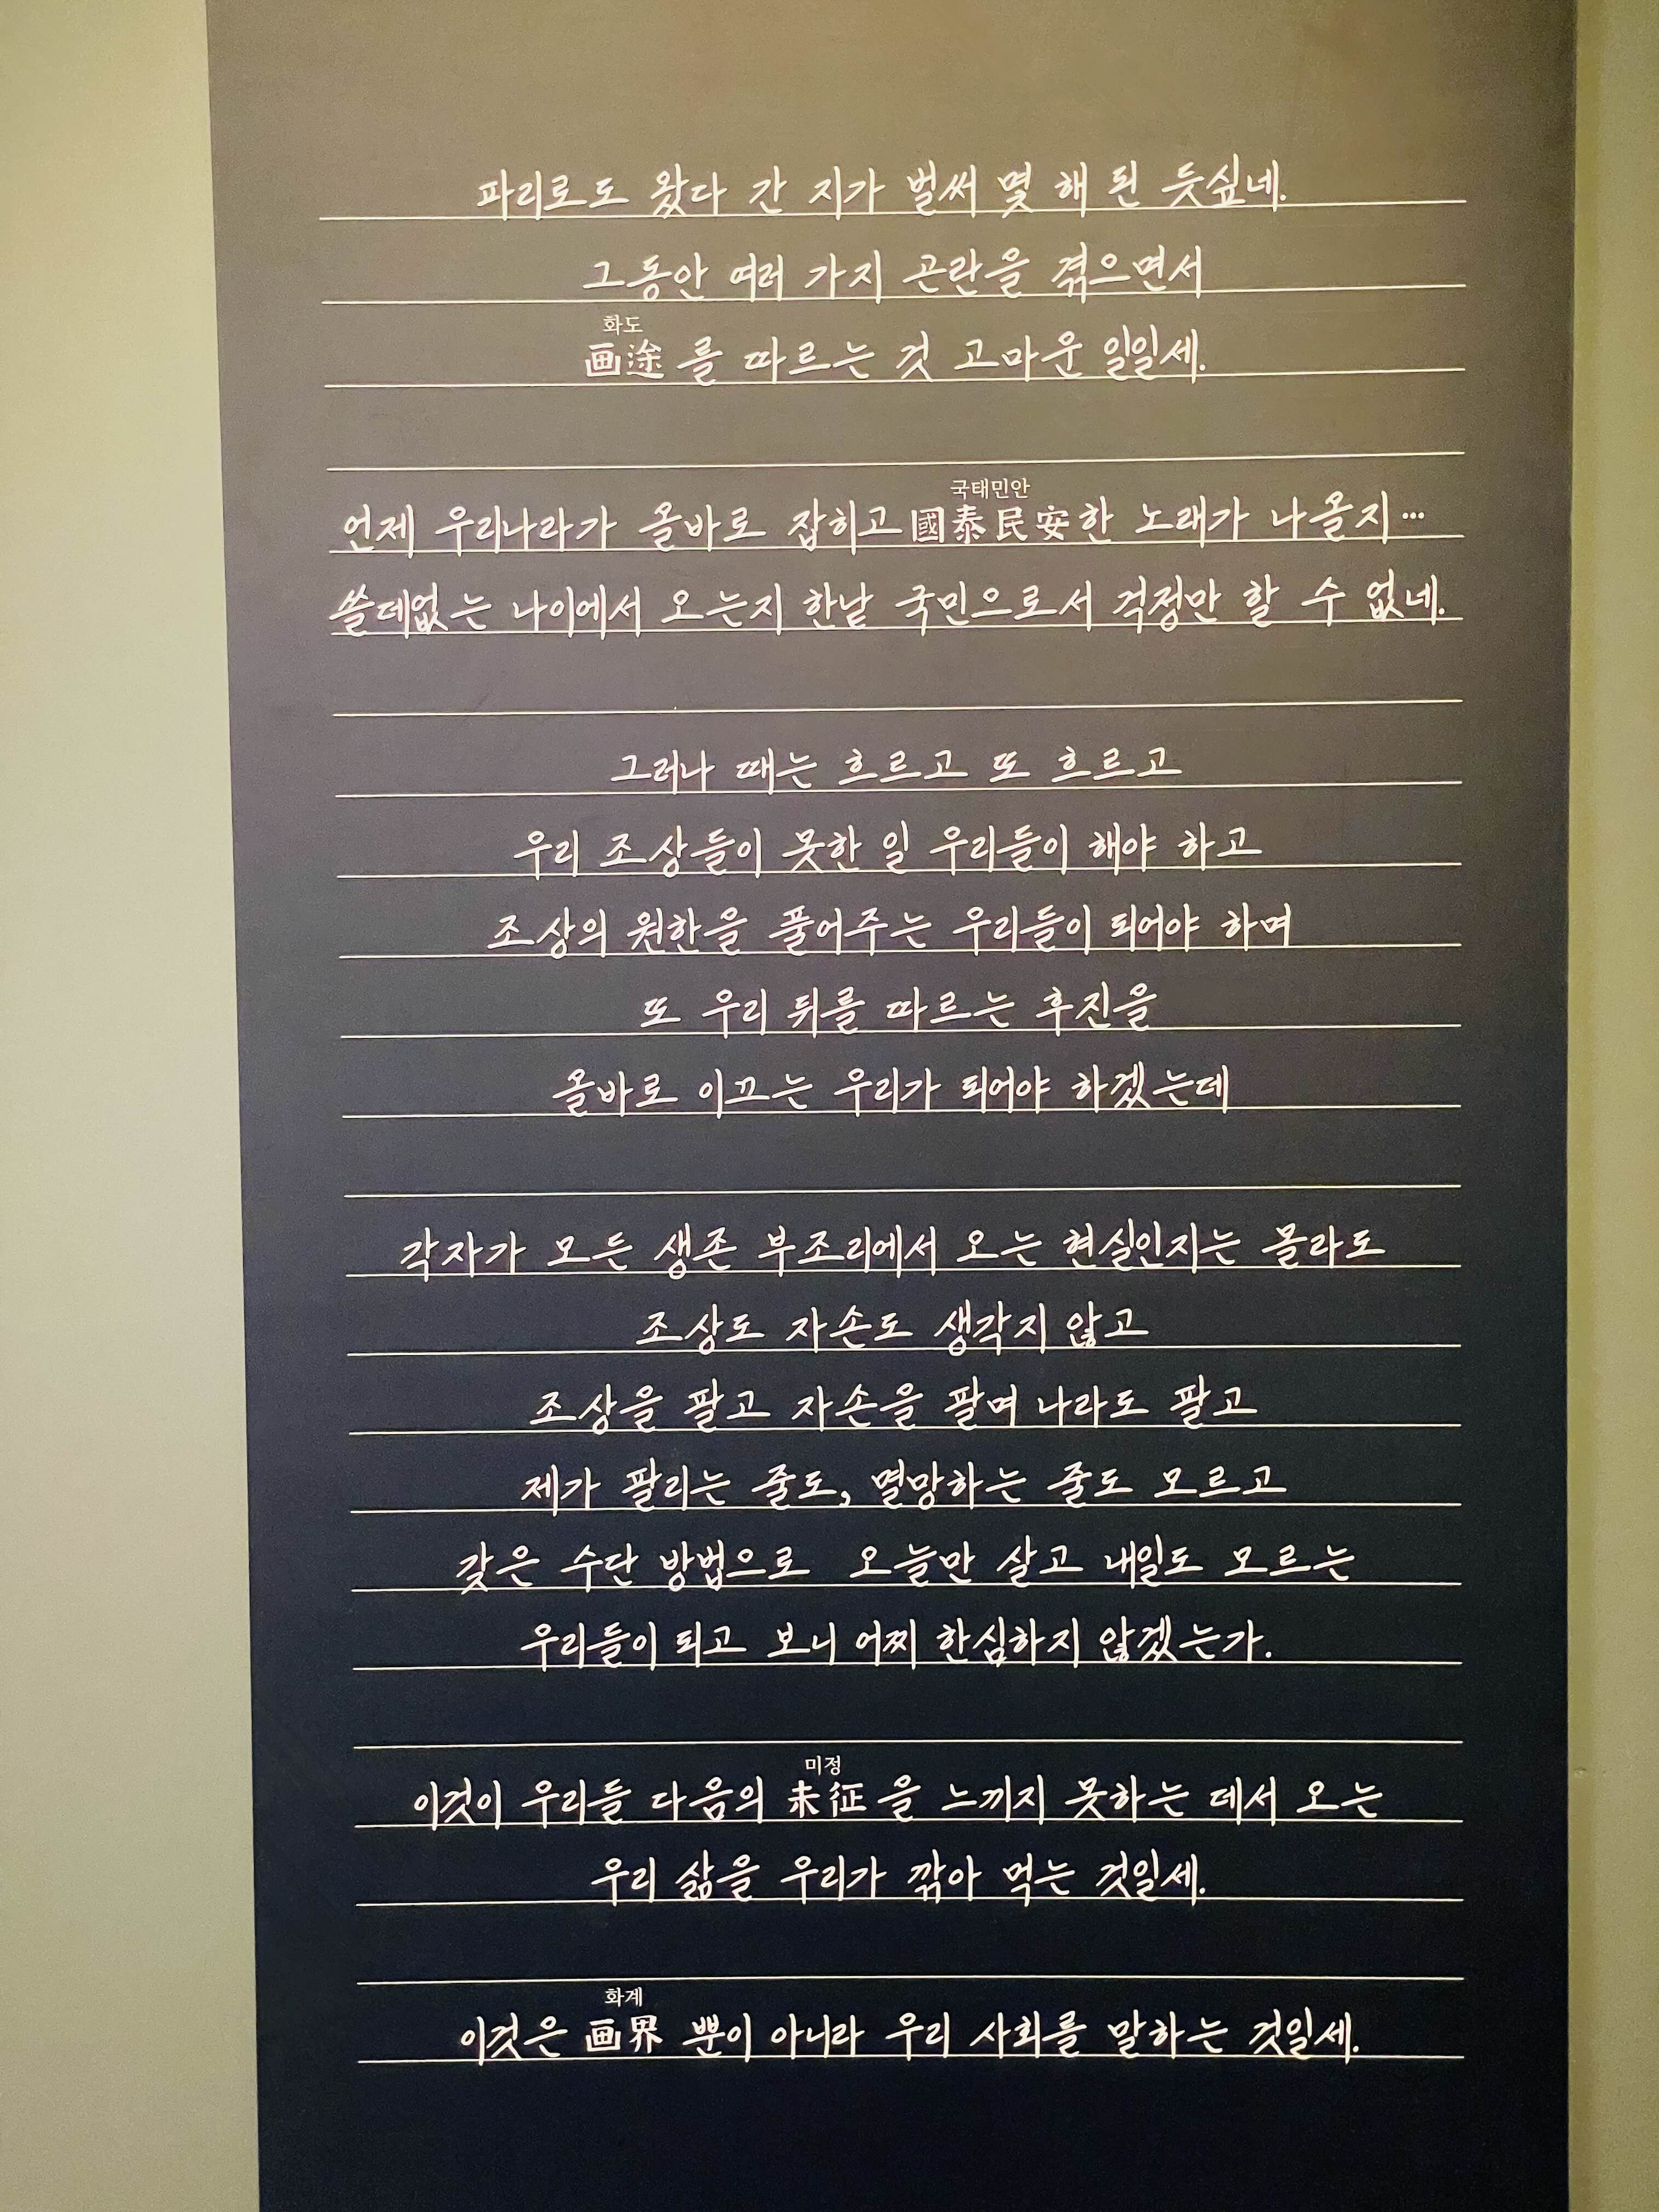 파리로도 왔다 간 지가 벌써 몇 해 된 듯싶네.
그동안 여러 가지 곤란을 겪으면서
화도
画途를 따르는 것 고마운 일일세.
국태민안
언제 우리나라가 올바로 잡히고 國泰民安한 노래가 나올지…
쓸데없는 나이에서 오는지 한낱 국민으로서 걱정만 할 수 없네.
그러나 때는 흐르고 또 흐르고
우리 조상들이 못한 일 우리들이 해야 하고
조상의 원한을 풀어주는 우리들이 되어야 하며
또 우리 뒤를 따르는 후진을
올바로 이끄는 우리가 되어야 하겠는데
각자가 모든 생존 부조리에서 오는 현실인지는 몰라도
조상도 자손도 생각지 않고
조상을 팔고 자손을 팔며 나라도 팔고
제가 팔리는 줄도, 멸망하는 줄도 모르고
갖은 수단 방법으로 오늘만 살고 내일도 모르는
우리들이 되고 보니 어찌 한심하지 않겠는가.
미정
이것이 우리들 다음의 未征을 느끼지 못하는 데서 오는
우리 삶을 우리가 깎아 먹는 것일세.
화계
이것은 画界 뿐이 아니라 우리 사회를 말하는 것일세.